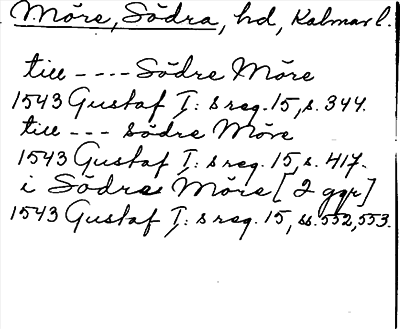 Möre, Södra, hd, Kalmar l.
till ---- Södre Möre
1543 Gustaf I: s reg. 15, s. 344.
till --- södre Möre
1543 Gustaf I: s reg. 15, s. 417.
i Södre Möre [2 ggr]
1543 Gustaf I: s reg. 15, ss. 552, 553.